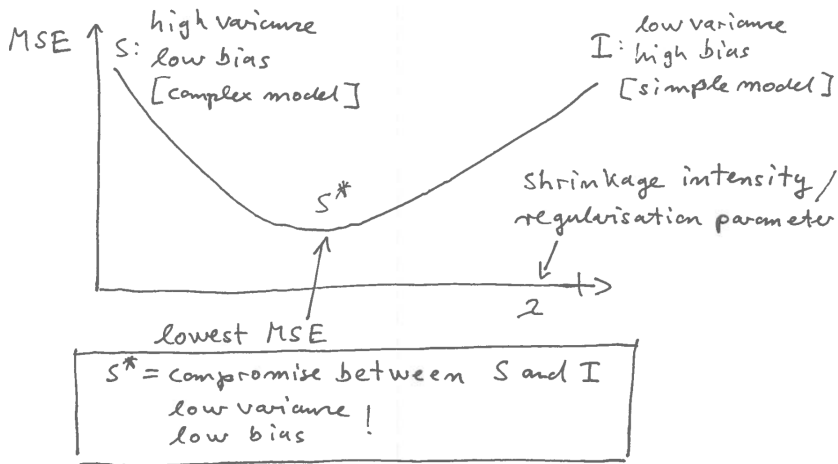 MSE
S:
high variance
low bias
[complex model]
I:
low variance
high bias
[simple model]
S*
shrinkage intensity/
regularisation parameter
λ
lowest MSE
S* = compromise between S and I
low variance
low bias !